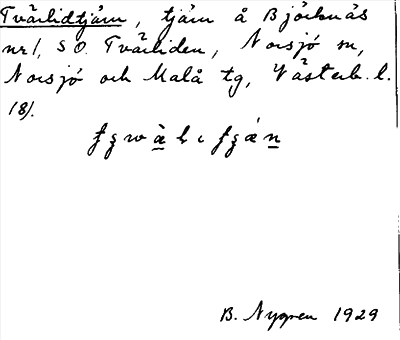 Tvärlidtjärn, tjärn å Björknäs
nr 1, SO. Tvärliden, Norsjö sn,
Norsjö och Malå tg, Västerb. l.
18).
B. Nygren 1929